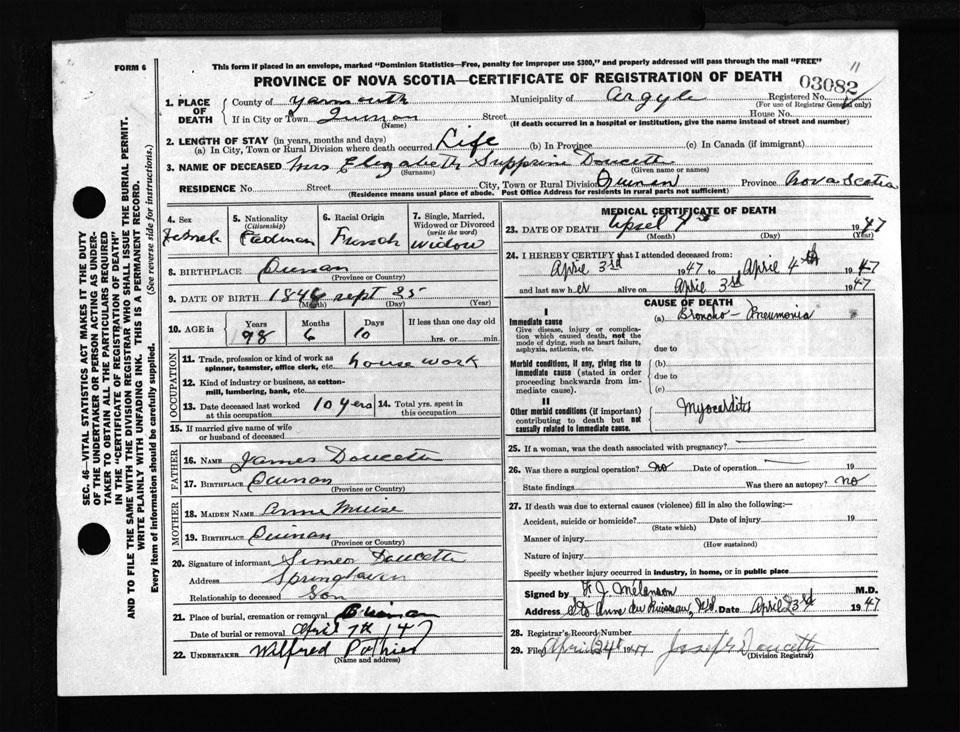 FORM 6
This form if placed in an envelope, marked "Dominion Statistics—Free, penalty for improper use $300," and properly addressed will pass through the mail "FREE"
11
PROVINCE OF NOVA SCOTIA—CERTIFICATE OF REGISTRATION OF DEATH
03082
1. PLACE OF DEATH
County of Yarmouth Municipality of Argyle Registered No.
(For use of Registrar General only)
If in City or Town Quinan Street House No.
(Name) (If death occurred in a hospital or institution, give the name instead of street and number)
2. LENGTH OF STAY (in years, months and days)
(a) In City, Town or Rural Division where death occurred Life (b) In Province (c) In Canada (if immigrant)
3. NAME OF DECEASED Mrs Elizabeth Supprine Doucette
(Surname) (Given name or names)
RESIDENCE No. Street City, Town or Rural Division Quinan Province Nova Scotia
(Residence means usual place of abode. Post Office Address for residents in rural parts not sufficient)
4. Sex 5. Nationality (Citizenship) 6. Racial Origin 7. Single, Married, Widowed or Divorced (write the word)
French Widow
8. BIRTHPLACE Quinan
(Province or Country)
9. DATE OF BIRTH 1848 sept 25
(Month) (Day) (Year)
10. AGE in Years Months Days If less than one day old
98 6 10 hrs. or min.
OCCUPATION
11. Trade, profession or kind of work as spinner, teamster, office clerk, etc. house work
12. Kind of industry or business, as cotton-mill, lumbering, bank, etc.
13. Date deceased last worked at this occupation 10 yers 14. Total yrs. spent in this occupation
15. If married give name of wife or husband of deceased
FATHER
16. NAME James Doucette
17. BIRTHPLACE Quinan
(Province or Country)
MOTHER
18. MAIDEN NAME Anne Muise
19. BIRTHPLACE Quinan
(Province or Country)
20. Signature of informant Simeon Doucette
Address Springhaven
Relationship to deceased Son
21. Place of burial, cremation or removal Quinan
Date of burial or removal April 7th 47
22. UNDERTAKER Wilfred Pothier
(Name and address)
MEDICAL CERTIFICATE OF DEATH
23. DATE OF DEATH 1947
(Month) (Day) (Year)
24. I HEREBY CERTIFY that I attended deceased from:
April 3rd 1947 to April 4th 1947
and last saw her alive on April 3rd 1947
CAUSE OF DEATH
I
Immediate cause (a) Broncho-Pneumonia
Give disease, injury or complication which caused death, not the mode of dying, such as heart failure, asphyxia, asthenia, etc.
due to
Morbid conditions, if any, giving rise to immediate cause (stated in order proceeding backwards from immediate cause).
(b)
due to
(c)
II
Other morbid conditions (if important) contributing to death but not causally related to immediate cause.
Myocarditis
25. If a woman, was the death associated with pregnancy?
26. Was there a surgical operation? no Date of operation 19
State findings Was there an autopsy? no
27. If death was due to external causes (violence) fill in also the following:
Accident, suicide or homicide? Date of injury 19
(State which)
Manner of injury
(How sustained)
Nature of injury
Specify whether injury occurred in industry, in home, or in public place
Signed by F. J. Mélanson M.D.
Address Ste Anne du Ruisseau, N.S. Date April 23rd 1947
28. Registrar's Record Number
29. Filed April 24th 1947 Joseph Doucette
(Division Registrar)
SEC. 46—VITAL STATISTICS ACT MAKES IT THE DUTY
OF THE UNDERTAKER OR PERSON ACTING AS UNDER-
TAKER TO OBTAIN ALL THE PARTICULARS REQUIRED
IN THE "CERTIFICATE OF REGISTRATION OF DEATH"
AND TO FILE THE SAME WITH THE DIVISION REGISTRAR WHO SHALL ISSUE THE BURIAL PERMIT.
WRITE PLAINLY WITH UNFADING INK. THIS IS A PERMANENT RECORD.
Every item of information should be carefully supplied. (See reverse side for instructions.)